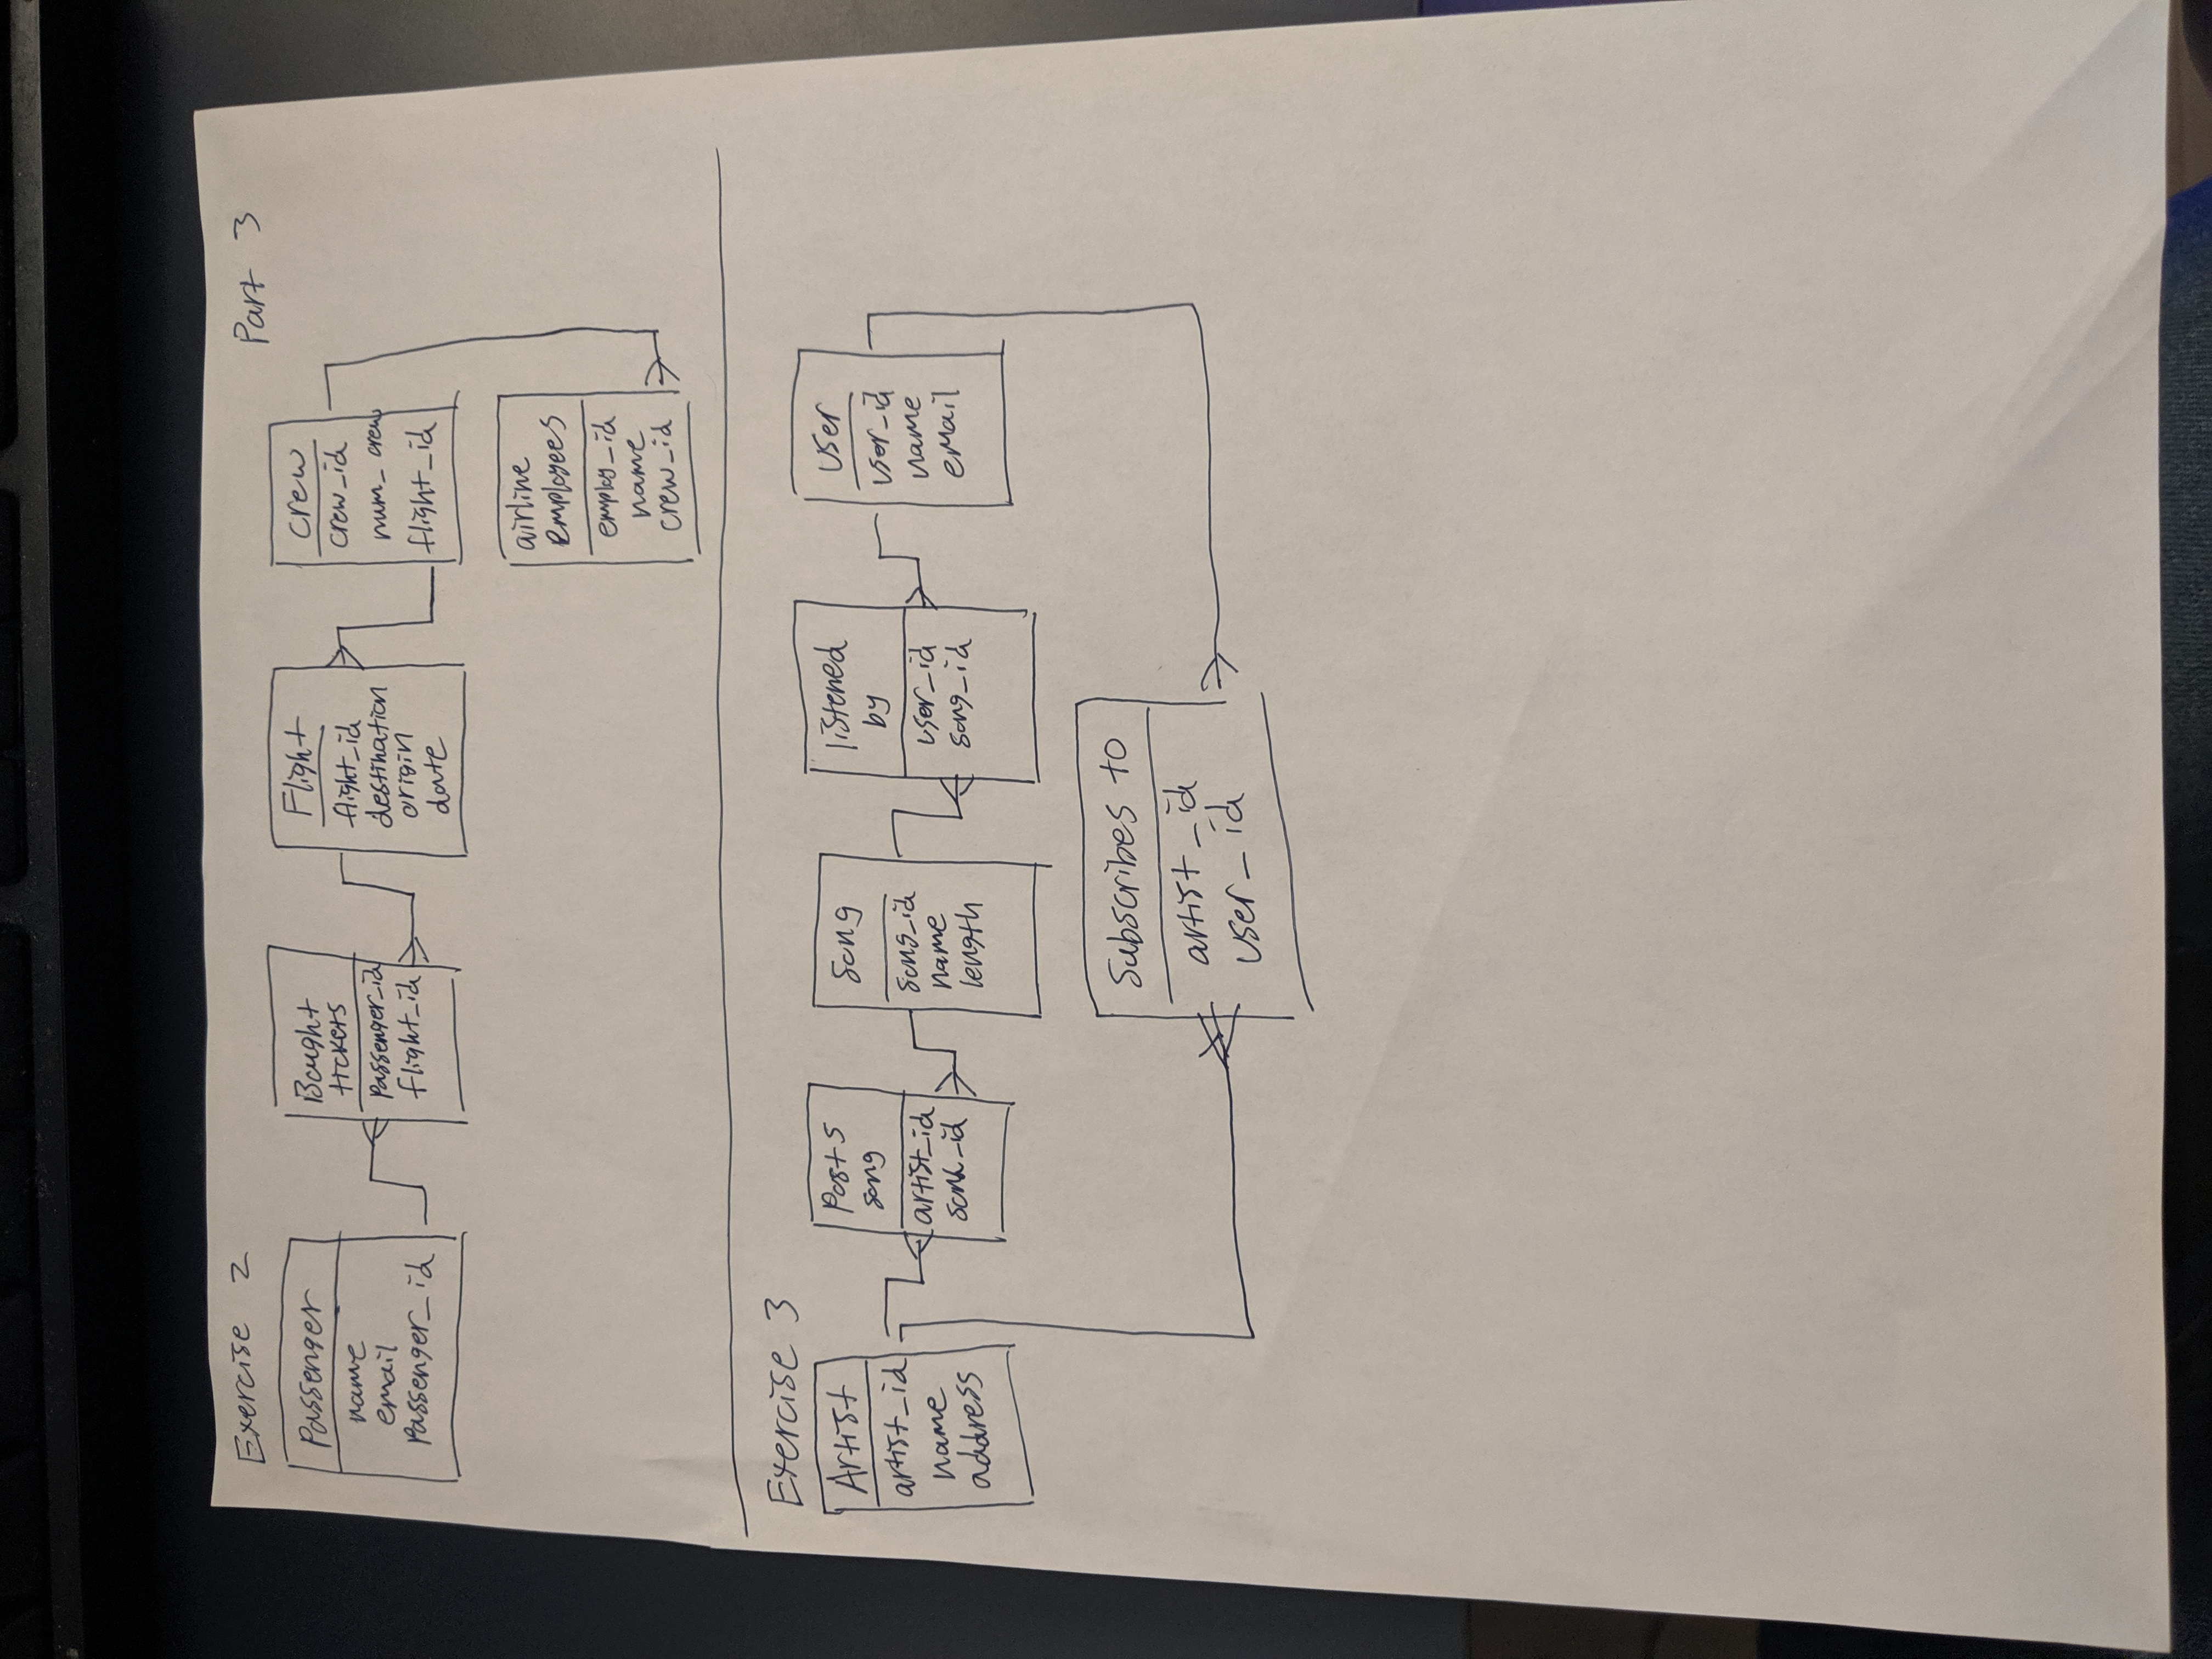 Exercise 2
Part 3
Passenger
name
email
passenger_id
Bought
tickets
passenger_id
flight_id
Flight
flight_id
destination
origin
date
crew
crew_id
num_crew
flight_id
airline
employees
employ_id
name
crew_id
Exercise 3
Artist
artist_id
name
address
Posts
song
artist_id
song_id
Song
song_id
name
length
listened
by
user_id
song_id
user
user_id
name
email
Subscribes to
artist_id
user_id